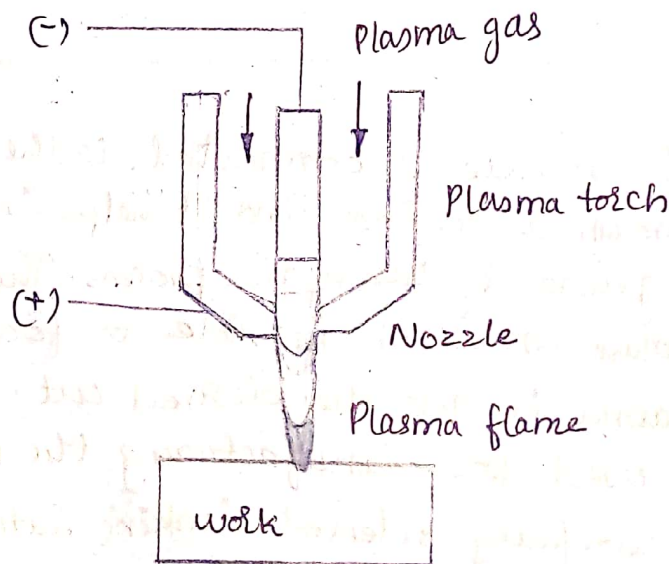 (-)
Plasma gas
Plasma torch
(+)
Nozzle
Plasma flame
work